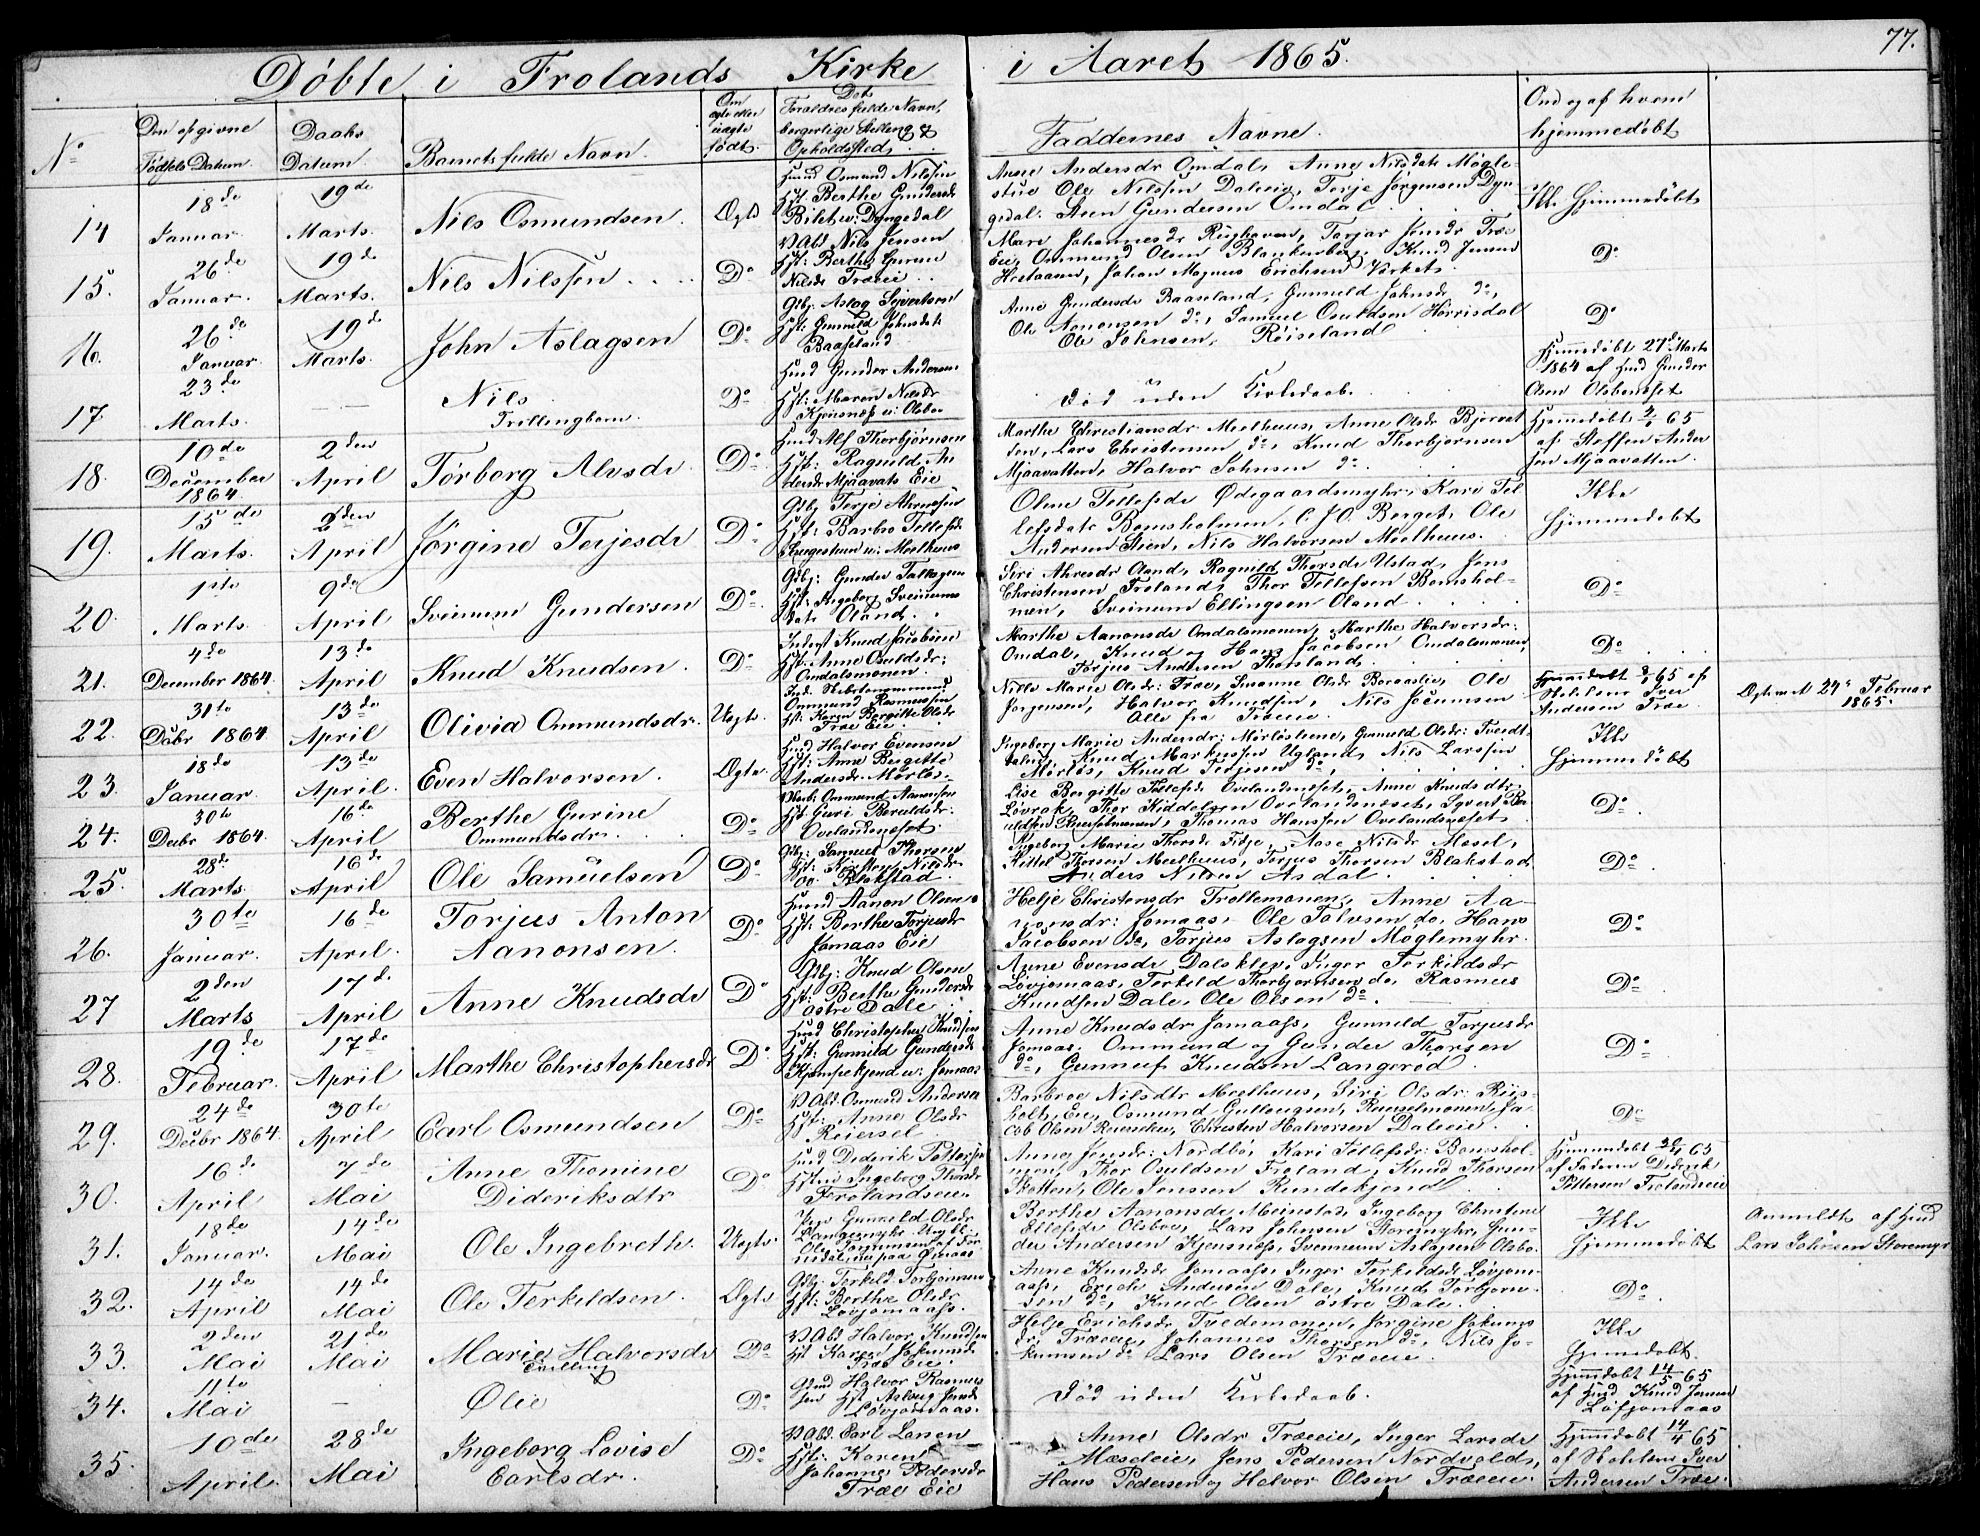 77.
Døbte i Frolands Kirke i Aaret 1865.
No
Den opgivne Fødsels Datum.
Daabs Datum.
Barnets fulde Navn.
Om ægte eller uægte født.
Forældres fulde Navn, borgerlige Stilling & Opholdsted.
Faddernes Navne.
Om og af hvem hjemmedøbt
14 18de Januar. 19de Marts. Nils Osmundsen. Ægte
Huusd Osmund Nilssen
Hst: Berthe Gundersdr
Dyngedal
Anne Andersdr Omdal, Anne Nilsdatr Møgle-
stue Ole Nilssen Daleeie, Terje Jørgensen Dyn
gedal. Steen Gundersen Omdal
Ikke Hjemmedøbt
15. 26de Januar. 19de Marts. Nils Nilssen Do
Nils Jensen
Hst: Berthe Gurine
Nilsdr Træeie
Mari Johannesdr
Eie, Ommund Olsen Blankenberg, Knud Jensen
Johan Magnus Erichsen
Do
16. 26de Januar. 19de Marts. John Aslagsen Do
Gbj. Aslag Syvertsen
Hst: Gunuld Johnsdatr
Baaseland
Anne Gundersdr Baaseland, Gunuld Johnsdr do,
Ole Aanonsen do, Samuel Osuldsen
Ole Johnsen, Røiseland
Do
17 23de Marts. Nils Trillingbarn. Do
Huusd Gunder Andersen
Hst: Maren Nilsdr
Død uden Kirkedaab.
Hjemmedøbt 27de Marts
1864 af Husd Gunder
Olsen
18. 10de December 1864. 2den April Tørborg Alvsdr Do
Husd Alf Thorbjørnsen
Hst: Ragnild An
dersdr Mjaavats Eie
Marthe Christiansdr Meelhuus, Anne Olsdr
Lars Christensen do, Knud Thorbjørnsen
Mjaavatten, Halvor Johnsen do
65
af Steffen Ander
sen Mjaavatten.
19. 15de Marts. 2den April Jørgine Terjesdr Do
Gbj Terje
Hst: Barbro Tellefsdr
Meelhuus
Olene Tellefsdr Ødegaardsmyhr, Kari Tel
lefsdatr Bomsholmen, C. J. O. Berget, Ole
Andersen Steen, Nils Halvorsen Meelhuus.
Ikke Hjemmedøbt
20. 1ste Marts. 9de April Sveinum Gundersen Do
Gbj: Gunder
Hst: Ingeborg Sveinums
datr Oland.
Siri Oland, Ragnild Thorsdr Ustad, Jens
Christensen Froland, Thor Tellefsen Bomshol-
men, Sveinum Ellingsen Oland
Do
21. 4de December 1864. 13de April Knud Knudsen. Do
Inderst Knud Jacobsen
Hst: Anne Osuldsdr:
Omdalsmonen.
Marthe Aanonsdr Omdalsmonen, Marthe Halvorsdr:
Omdal, Knud og Hans Jacobsen Omdalsmonen,
Torjus Andersen Thorsland.
Do
22. 31te Decbr 1864. 13de April Olivia Ommundsdr. Uægte.
Ommund Rasmussen
Hst: Karen Birgitte Olsdr
Træ Eie.
Marie Olsdr: Træ, Susanne Olsdr Ole
Jørgensen, Halvor Knudsen, Nils
Alle fra Træeie.
65 af
Iver
Andersen Træ
Februar 1865.
23. 18de Januar. 13de April. Even Halvorsen. Ægte.
Husd Halvor Evensen
Hst: Anne Birgitte
Andersdr. Mørløs
Ingeborg Marie Andersdr: Mørløsliene, Gunuld Olsdr:
Knud Markussen Ugland, Nils Larssen
Mørløs, Knud Terjesen do,
Ikke Hjemmedøbt
24. 30te Decbr 1864. 16de April Berthe Gurine Ommundsdr. Do
Ommund Aanonsen
Hst Guri
Ovelandsneset
Lise Birgitte Tellefsdr Ovelandsneset, Anne Knudsdtr
Løvrak, Thor Kiddelsen Ovelandsneset, Syvert
Thomas Hanssen Ovelandsneset.
Do
25. 28de Marts. 16de April Ole Samuelsen Do
Gbj: Samuel Thorsen
Hst: Kirsten Nilsdr.
Blakstad.
Ingeborg Marie Thorsdr Aase Nilsdr Mæsel,
Kittel Thorsen Meelhuus, Torjus Thorsen Blakstad,
Anders Nilsen Asdal.
Do
26. 30te Januar. 16de April. Torjus Anton Aanonsen. Do
Husd Aanon Olsen
Hst: Berthe Torjusdr
Jomaas Eie
Helje Christensdr Trellemonen, Anne Aa-
nonsdr: Jomaas, Ole Talvsen do, Hans
Jacobsen do, Torjus Aslagsen Møglemyhr.
Do
27 2den Marts 17de April Anne Knudsdr Do
Gbj: Knud Olsen
Hst: Berthe Gundersdr
østre Dale
Anne Evensdr Dalsklev, Inger Terkildsdr
Løvjomaas, Terkild Thorbjørnsen do, Rasmus
Knudsen Dale, Ole Olsen do.
Do
28. 19de Februar. 17de April Marthe Christophersdr Do
Husd Christopher Knudsen
Hst: Gunnild Gundersdr
Jomaas
Anne Knudsdr Jomaass, Gunnild Torjusdr
Jomaas, Ommund og Gunder Thorsen
do, Gunnuf Knudsen Langerød.
Do
29. 24de Decbr 1864. 30te April Carl Osmundsen Do
Osmund Andersen
Hst: Anne Olsdr
Reiersel
Barbroe Nilsdtr Meelhuus, Siri Olsdr. Riis-
holt, Eie, Osmund Gulleugsen, Ja-
cob Olsen Christen Halvorsen Daleeie.
Do
30. 16de April 7de Mai Anne Thomine Dideriksdtr Do
Husd Diderik Pettersen
Hstru Ingeborg Thorsdr
Frolandseie.
Anne Jensdr: Nordbø, Kari Tellefsdr: Bomshol-
men, Thor Osuldsen Froland, Knud Thorsen
Skotten, Ole Jenssen
Hjemmedøbt 65
af Faderen Diderik
Pettersen Frolandseie
31. 18de Januar. 14de Mai Ole Ingebreth. Uægte
Pige Gunuld Olsdr
Langesmyhr
Berthe Aanonsdr Meinstad, Ingeborg Christine
Ellefsdr Olsbro, Lars Johnsen Storemyhr, Gun-
der Andersen Sveinnum Aslagsen
Ikke Hjemmedøbt
Anmeldt af Husd
Lars Johnsen Storemyr
32. 14de April 14de Mai Ole Terkildsen. Ægte
Gbj: Terkild Torbjørnsen
Hst: Berthe Olsdr
Løvjomaass.
Anne Knudsdr Jomaass, Inger Terkildsdr Løvjom-
aass, Erich Andersen Dale, Knud Torbjørn-
sen do, Knud Olsen østre Dale.
Do
33. 2den Mai 21de Mai Marie Halvorsdr Do
Halvor Knudsen
Hst Karen
Træ Eie.
Helje Erichsdr Tvedemonen, Jørgine
dr, Træeie, Johannes Thorsen do, Nils Jo-
kumsen do Lars Olsen Træeie.
Ikke Hjemmedøbt.
34. 11te Mai Tvilling Olie Do
Husd Halvor Rasmus
sen Hst Aslaug Jensdr
Løvjomaas.
Død uden Kirkedaab.
Hjemmdøbt 14/5 65
af Husd Knud Jensen
Løfjomaas
35. 10de April. 28de Mai Ingeborg Lovise Carlsdr. Do
Carl Larsen
Hst: Karen
Johanne Pedersdr
Træ Eie
Anne Olsdr Træeie, Inger Larsdr
Mæseleie, Jens Pedersen Nordvold,
Hans Pedersen og Halvor Olsen Træeeie.
Hjemmdøbt 14/4 65
af Iver
Andersen Træ.